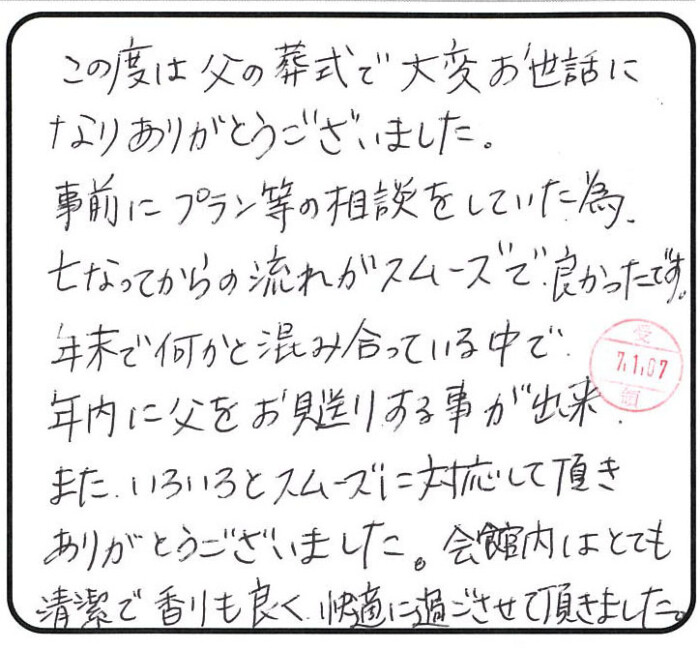 この度は父の葬式で大変お世話に
なりありがとうございました。
事前にプラン等の相談をしていた為、
亡なってからの流れがスムーズで、良かったです。
年末で何かと混み合っている中で、
年内に父をお見送りする事が出来、
また、いろいろとスムーズに対応して頂き
ありがとうございました。会館内はとても
清潔で香りも良く、快適に過ごさせて頂きました。
受
7.1.07
領